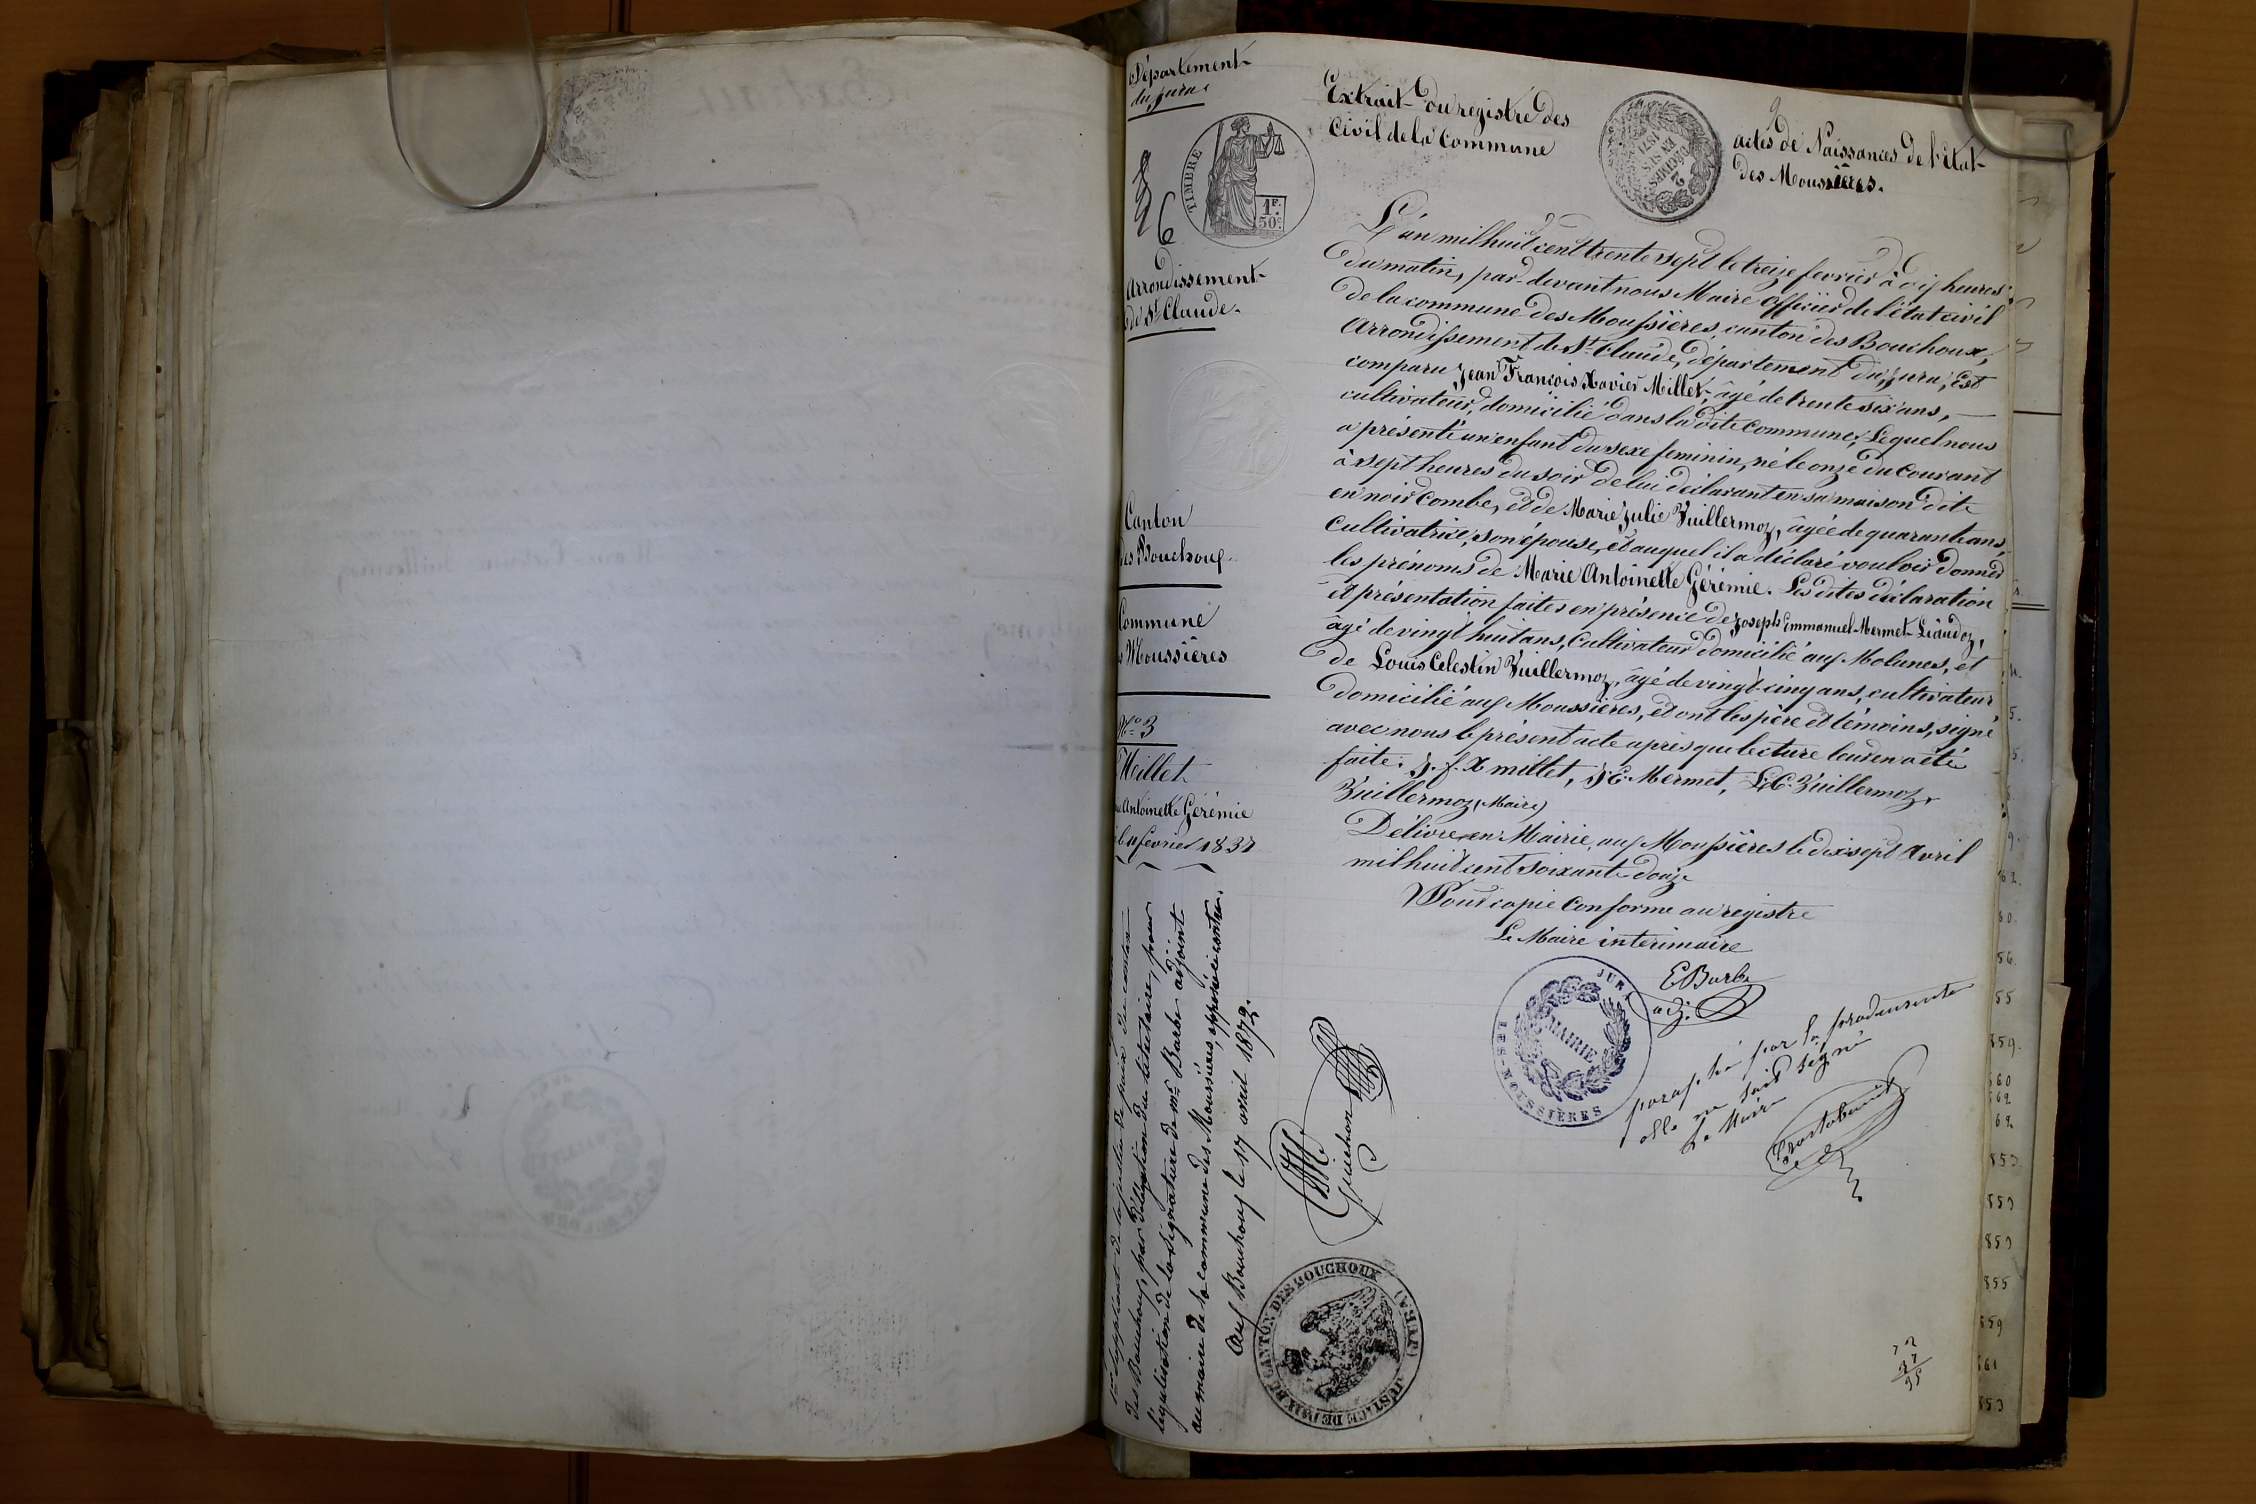 Département
du Jura
TIMBRE
1F.
50c
26
Arrondissement
de St Claude.
Canton
des Bouchoux
Commune
Moussières
No 3
Millet
Antoinette Gérémie
11 février 1837
Extrait du registre des actes de Naissances de l'état
civil de la Commune des Moussières.
2
DÉCIMES
EN SUS
1871
L'an mil huit cent trente sept le treize fevrier à dix heures
du matin, par-devant nous Maire officier de l'état civil
de la commune des Moussières, canton des Bouchoux,
Arrondissement de St Claude, département du Jura, Est
comparu Jean François Xavier Millet, âgé de trente six ans,
cultivateur, domicilié dans la dite Commune, Lequel nous
a présenté un enfant du sexe feminin, né le onze du Courant
à sept heures du soir de lui déclarant en sa maison dite
en noir Combe, et de Marie Julie Vuillermoz, âgée de quarante ans
Cultivatrice, son épouse, et auquel il a déclaré vouloir donner
les prénoms de Marie Antoinette Gérémie. Les dites déclaration
et présentation faites en présence de Joseph Emmanuel Mermet-Liaudoz,
âgé de vingt huit ans, Cultivateur domicilié aux Molunes, et
de Louis Celestin Vuillermoz, âgé de vingt-cinq ans, cultivateur
domicilié aux Moussières, et ont les père et témoins, signé
avec nous le présent acte après que lecture leur en a été
faite. J. f. X millet, J. E. Mermet, L. C. Vuillermoz,
Vuillermoz, (Maire)
Délivré en Mairie, aux Moussières le dix sept Avril
mil huit cent soixante douze
Pour copie Conforme au registre
Le Maire intérimaire
E Barbe
adj.
MAIRIE
JURA
LES-MOUSSIÈRES
paraphé par la produisante
elle en sait signé
Le Maire
suppléant de la justice de paix du canton
des Bouchoux, par délégation du titulaire, pour
légalisation de la signature de mr. Barbe adjoint
au maire de la commune des Moussières, apposée ci-contre.
aux Bouchoux le 17 avril 1872.
Guichon
JUSTICE DE PAIX DU CANTON DES BOUCHOUX (JURA)
72
37
35